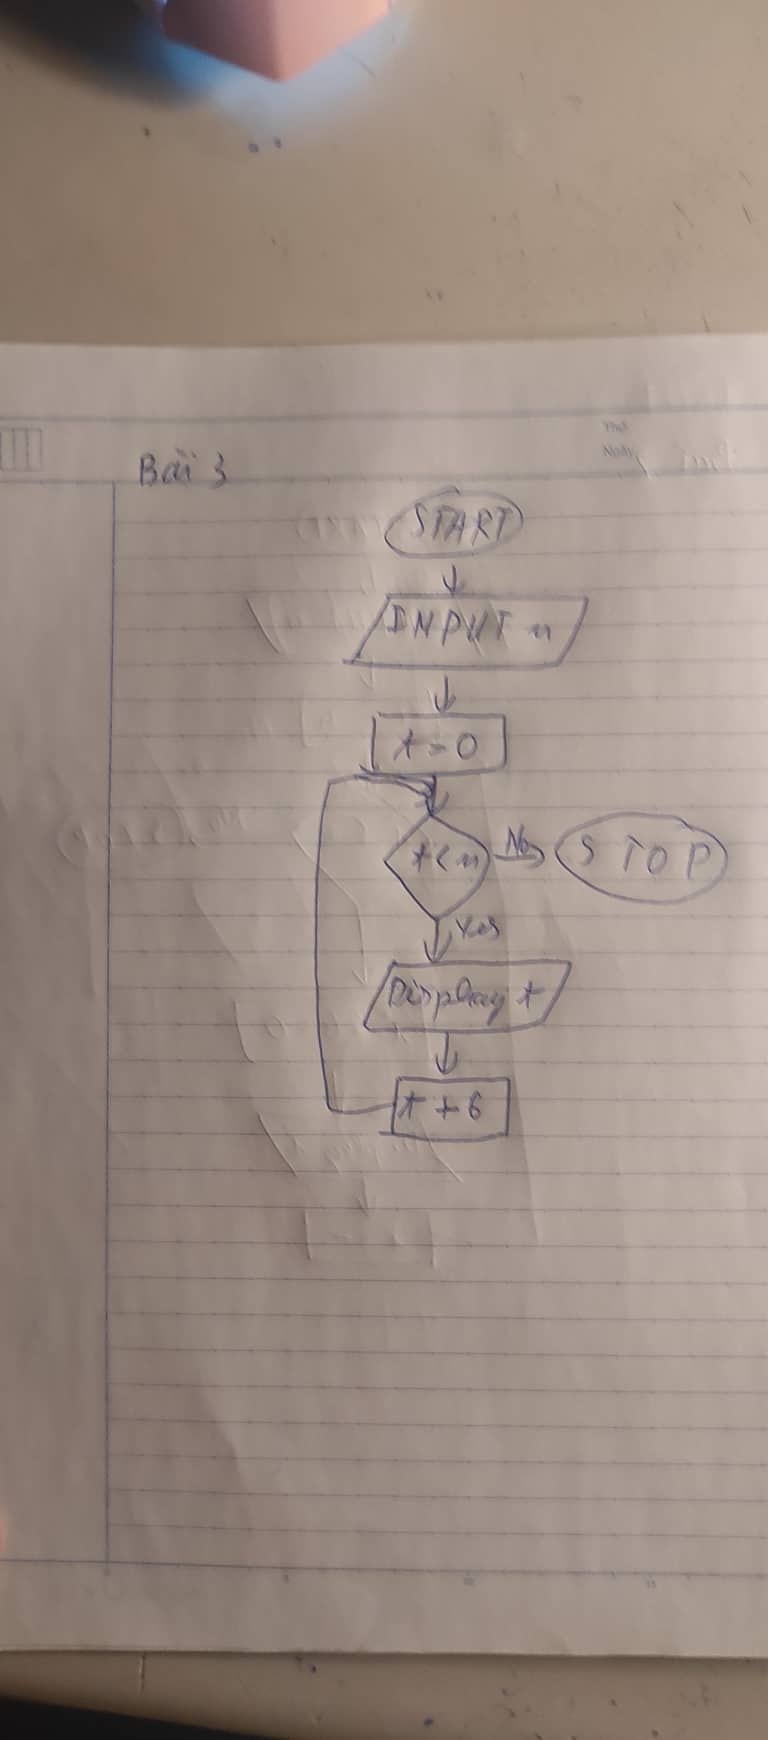 Thứ
Ngày
Bài 3
START
INPUT n
t = 0
t < n
No
STOP
Yes
Display t
t + 6